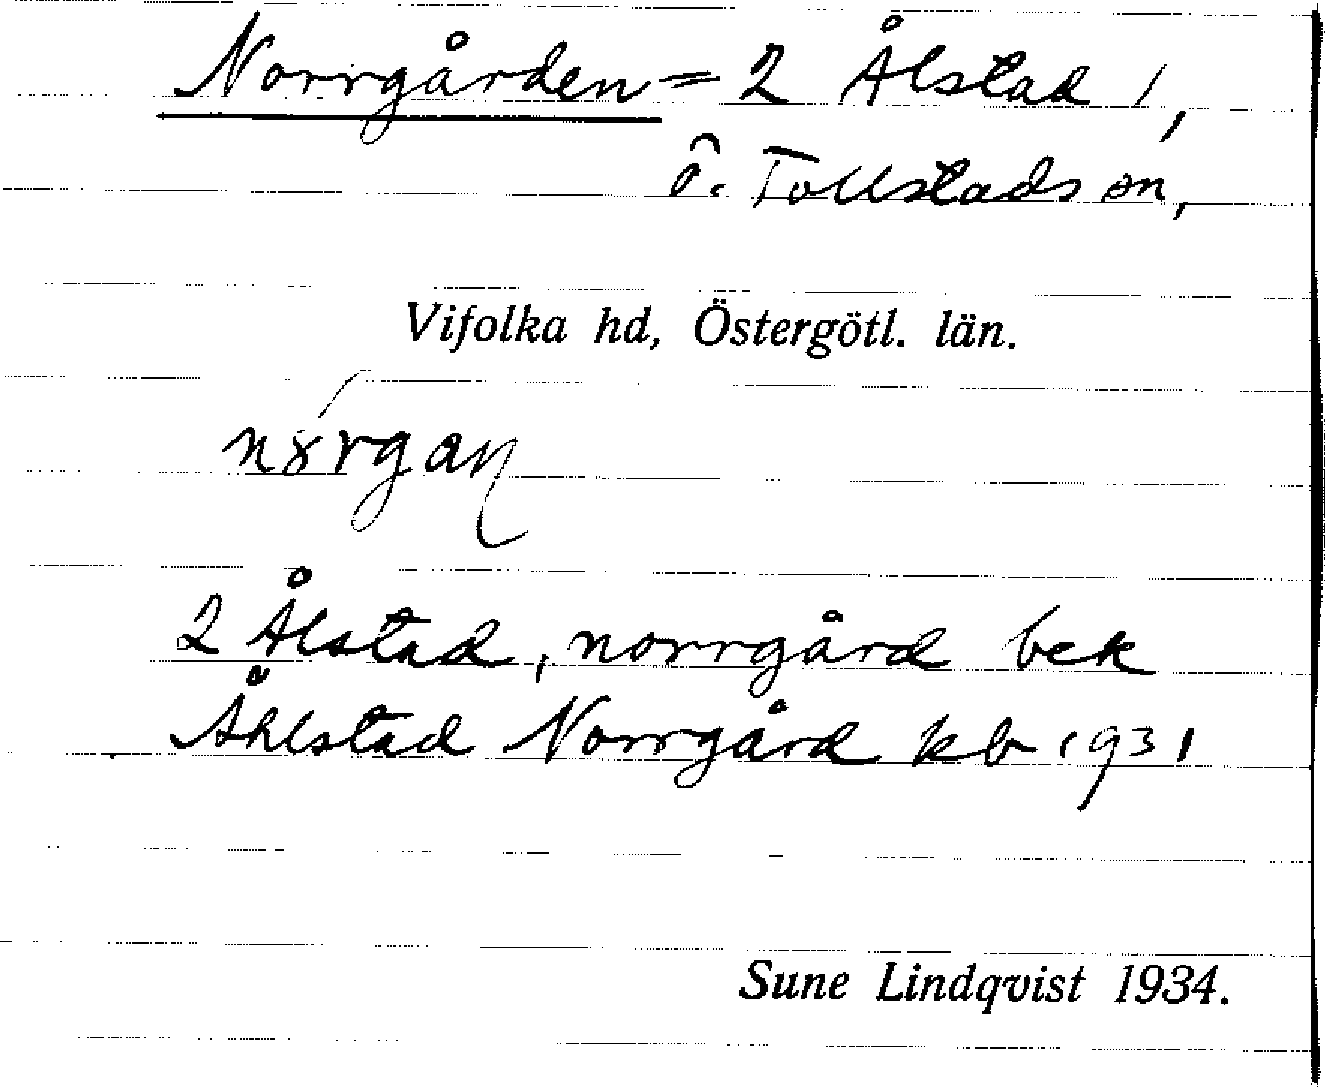 Norrgården = 2 Ålstad 1,
Ö. Tollstads sn,
Vifolka hd, Östergötl. län.
2 Ålstad, norrgård bek
Åhlstad Norrgård kb 1931
Sune Lindqvist 1934.